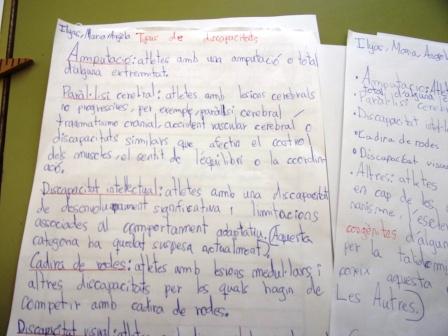 Ilyas, Maria Angela Tipus de discapacitats
Amputació: atletes amb una amputació o total
d'alguna extremitat.
Paràlisi cerebral: atletes amb lesions cerebrals
no progressives, per exemple, paràlisi cerebral
traumatisme cranial, accident vascular cerebral o
discapacitats similars que afectin el
dels muscles, el sentit de l'equilibri o la coordin
ació.
Discapacitat intel·lectual: atletes amb una discapacitat
de desenvolupament significativa i limitacions
associades al comportament adaptatiu. (Aquesta
categoria ha quedat suspesa actualment)
Cadira de rodes: atletes amb lesions medul·lars i
altres discapacitats per les quals hagin de
competir amb cadira de rodes.
Discapacitat visual: atletes
Ilyas, Maria Angel
Amputació: Atle
total d'alguna
Paràlisi cere
Discapacitat int
Cadira de rodes
Discapacitat visua
Altres: atletes
en cap de les
nanisme,
congènites d'algun
per la
aquesta
Les Autres.)